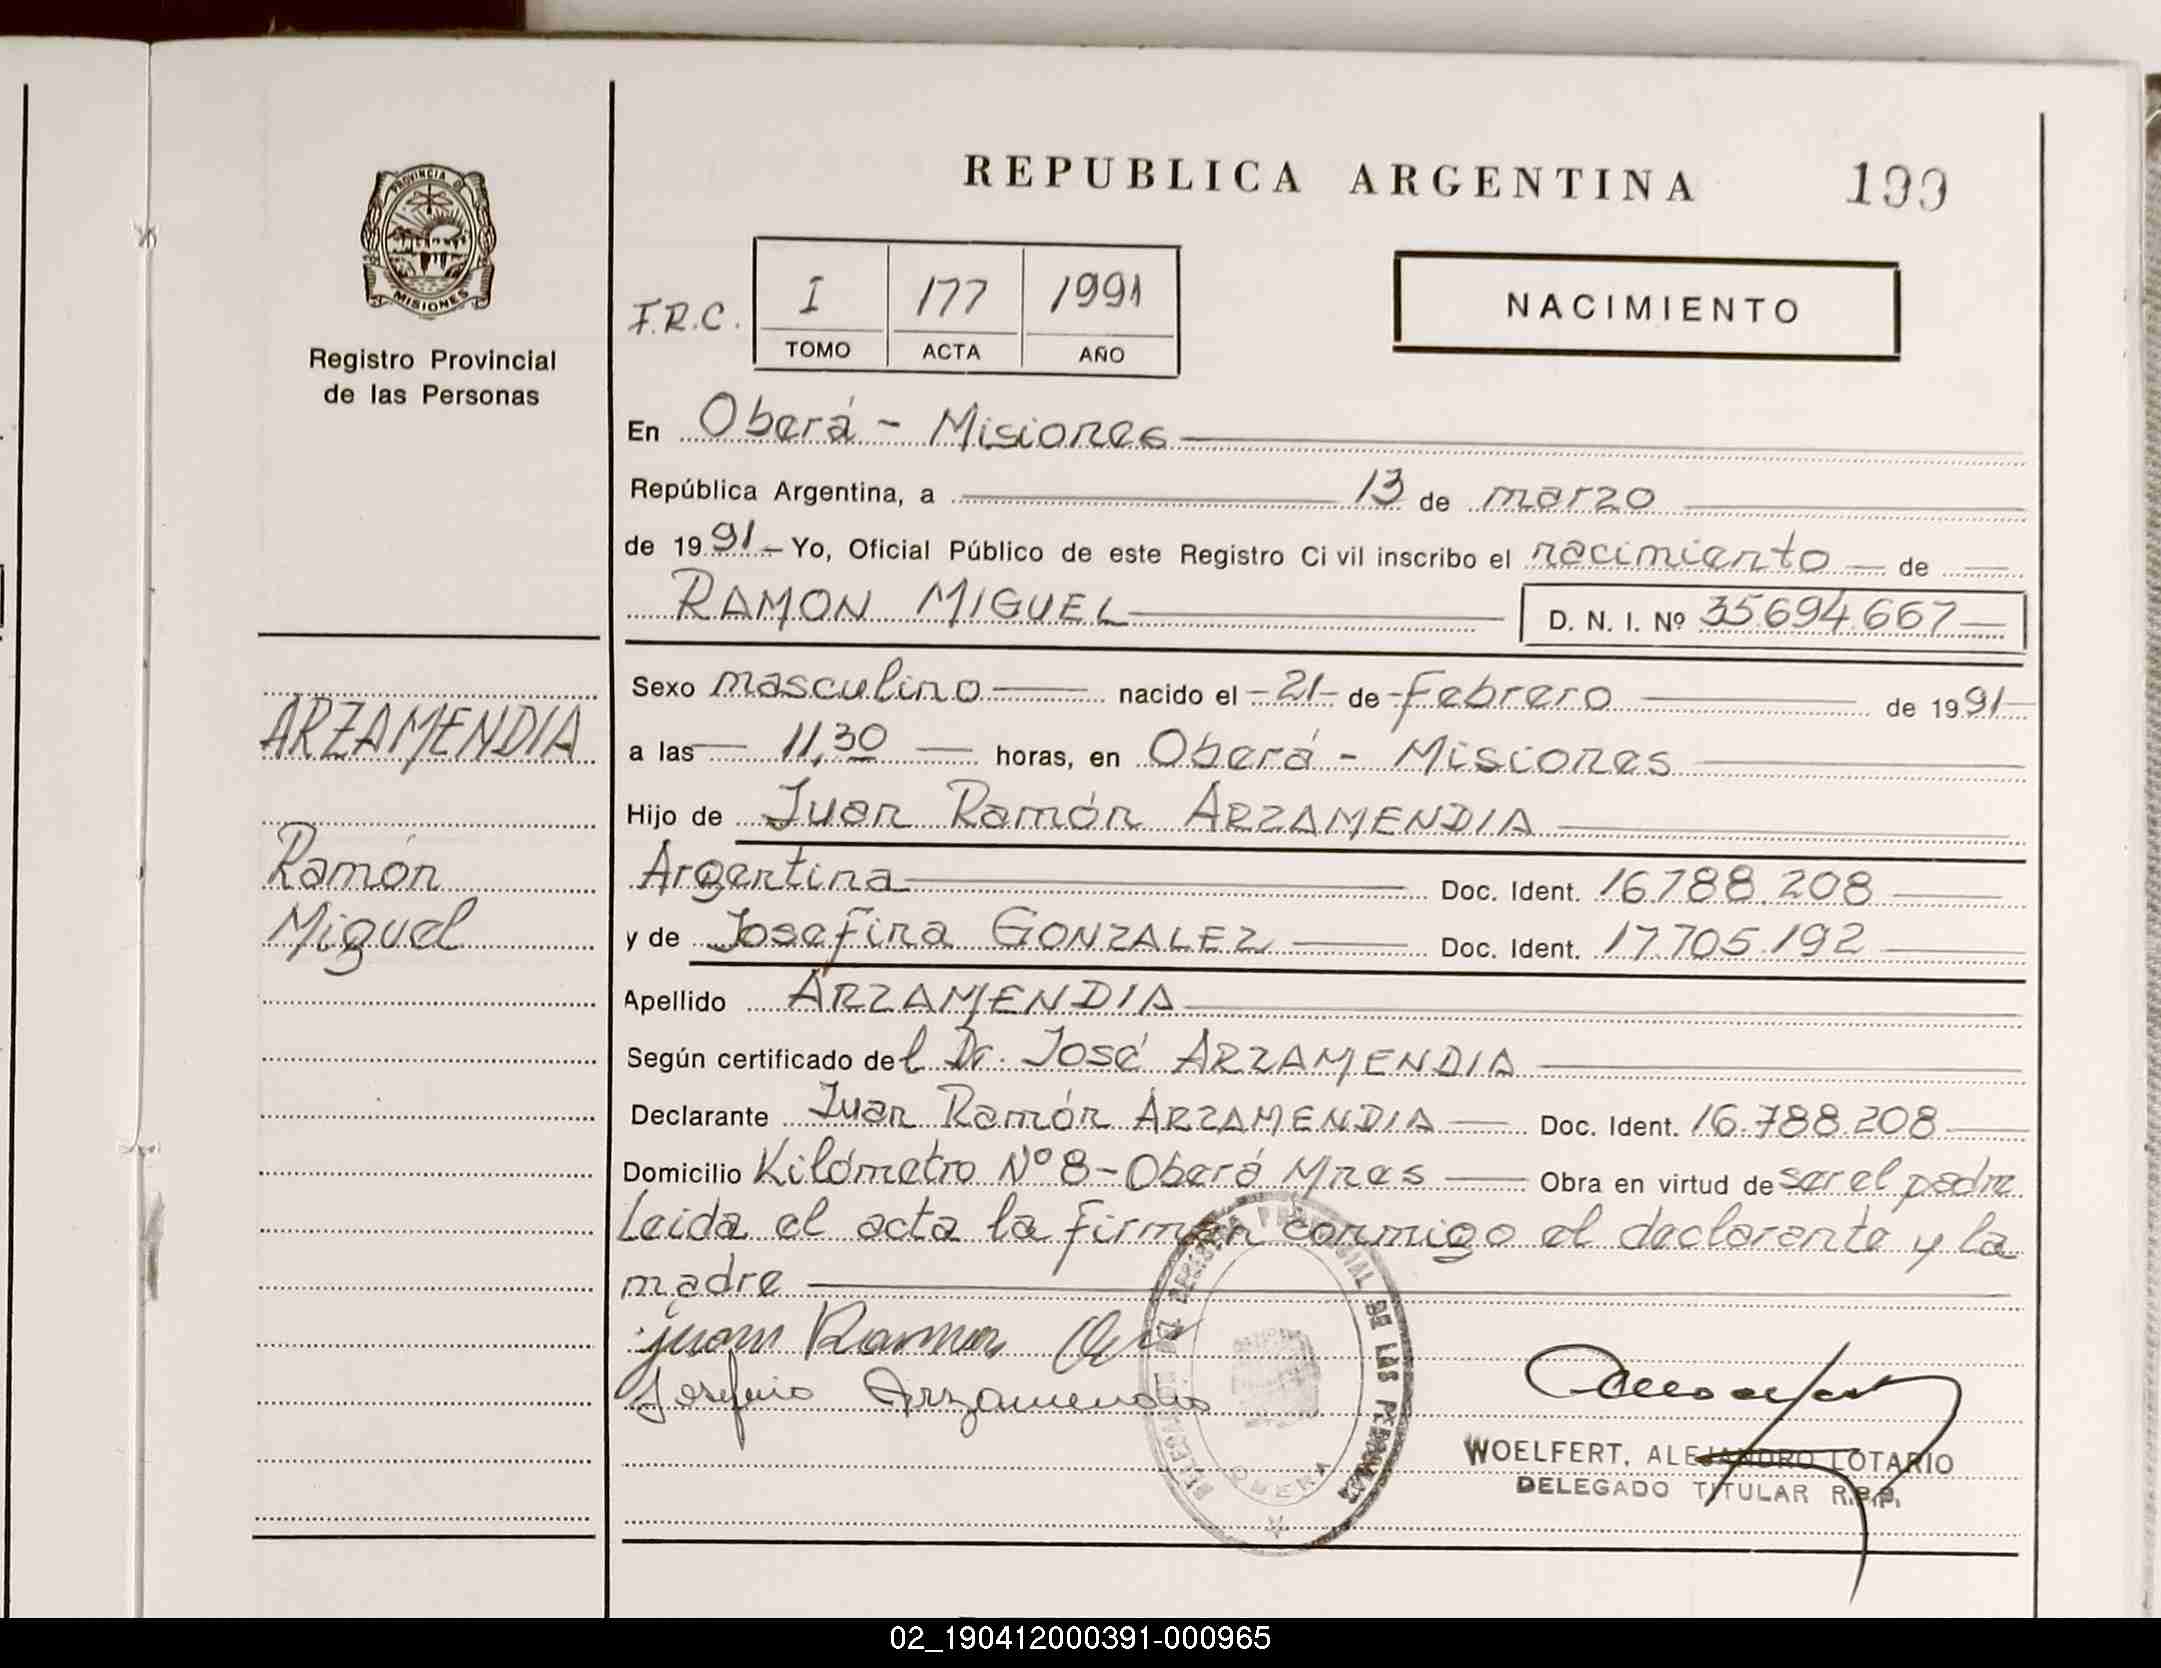 REPUBLICA ARGENTINA
199
PROVINCIA DE
MISIONES
Registro Provincial
de las Personas
F.R.C.
I 177 1991
TOMO ACTA AÑO
NACIMIENTO
En Oberá - Misiones
República Argentina, a 13 de marzo
de 1991 - Yo, Oficial Público de este Registro Civil inscribo el nacimiento de
RAMON MIGUEL D. N. I. Nº 35.694.667
ARZAMENDIA
Ramón
Miguel
Sexo masculino nacido el - 21 - de - Febrero de 1991
a las 11,30 horas, en Oberá - Misiones
Hijo de Juan Ramón ARZAMENDIA
Argentina Doc. Ident. 16.788.208
y de Josefina GONZALEZ Doc. Ident. 17.705.192
Apellido ARZAMENDIA
Según certificado del Dr. José ARZAMENDIA
Declarante Juan Ramón ARZAMENDIA Doc. Ident. 16.788.208
Domicilio Kilómetro Nº 8 - Oberá Mnes Obra en virtud de ser el padre
Leida el acta la firman conmigo el declarante y la
madre
juan Ramon
Josefina Arzamendia
REGISTRO PROVINCIAL DE LAS PERSONAS
OBERA
WOELFERT, ALEJANDRO LOTARIO
DELEGADO TITULAR R.P.P.
02_190412000391-000965